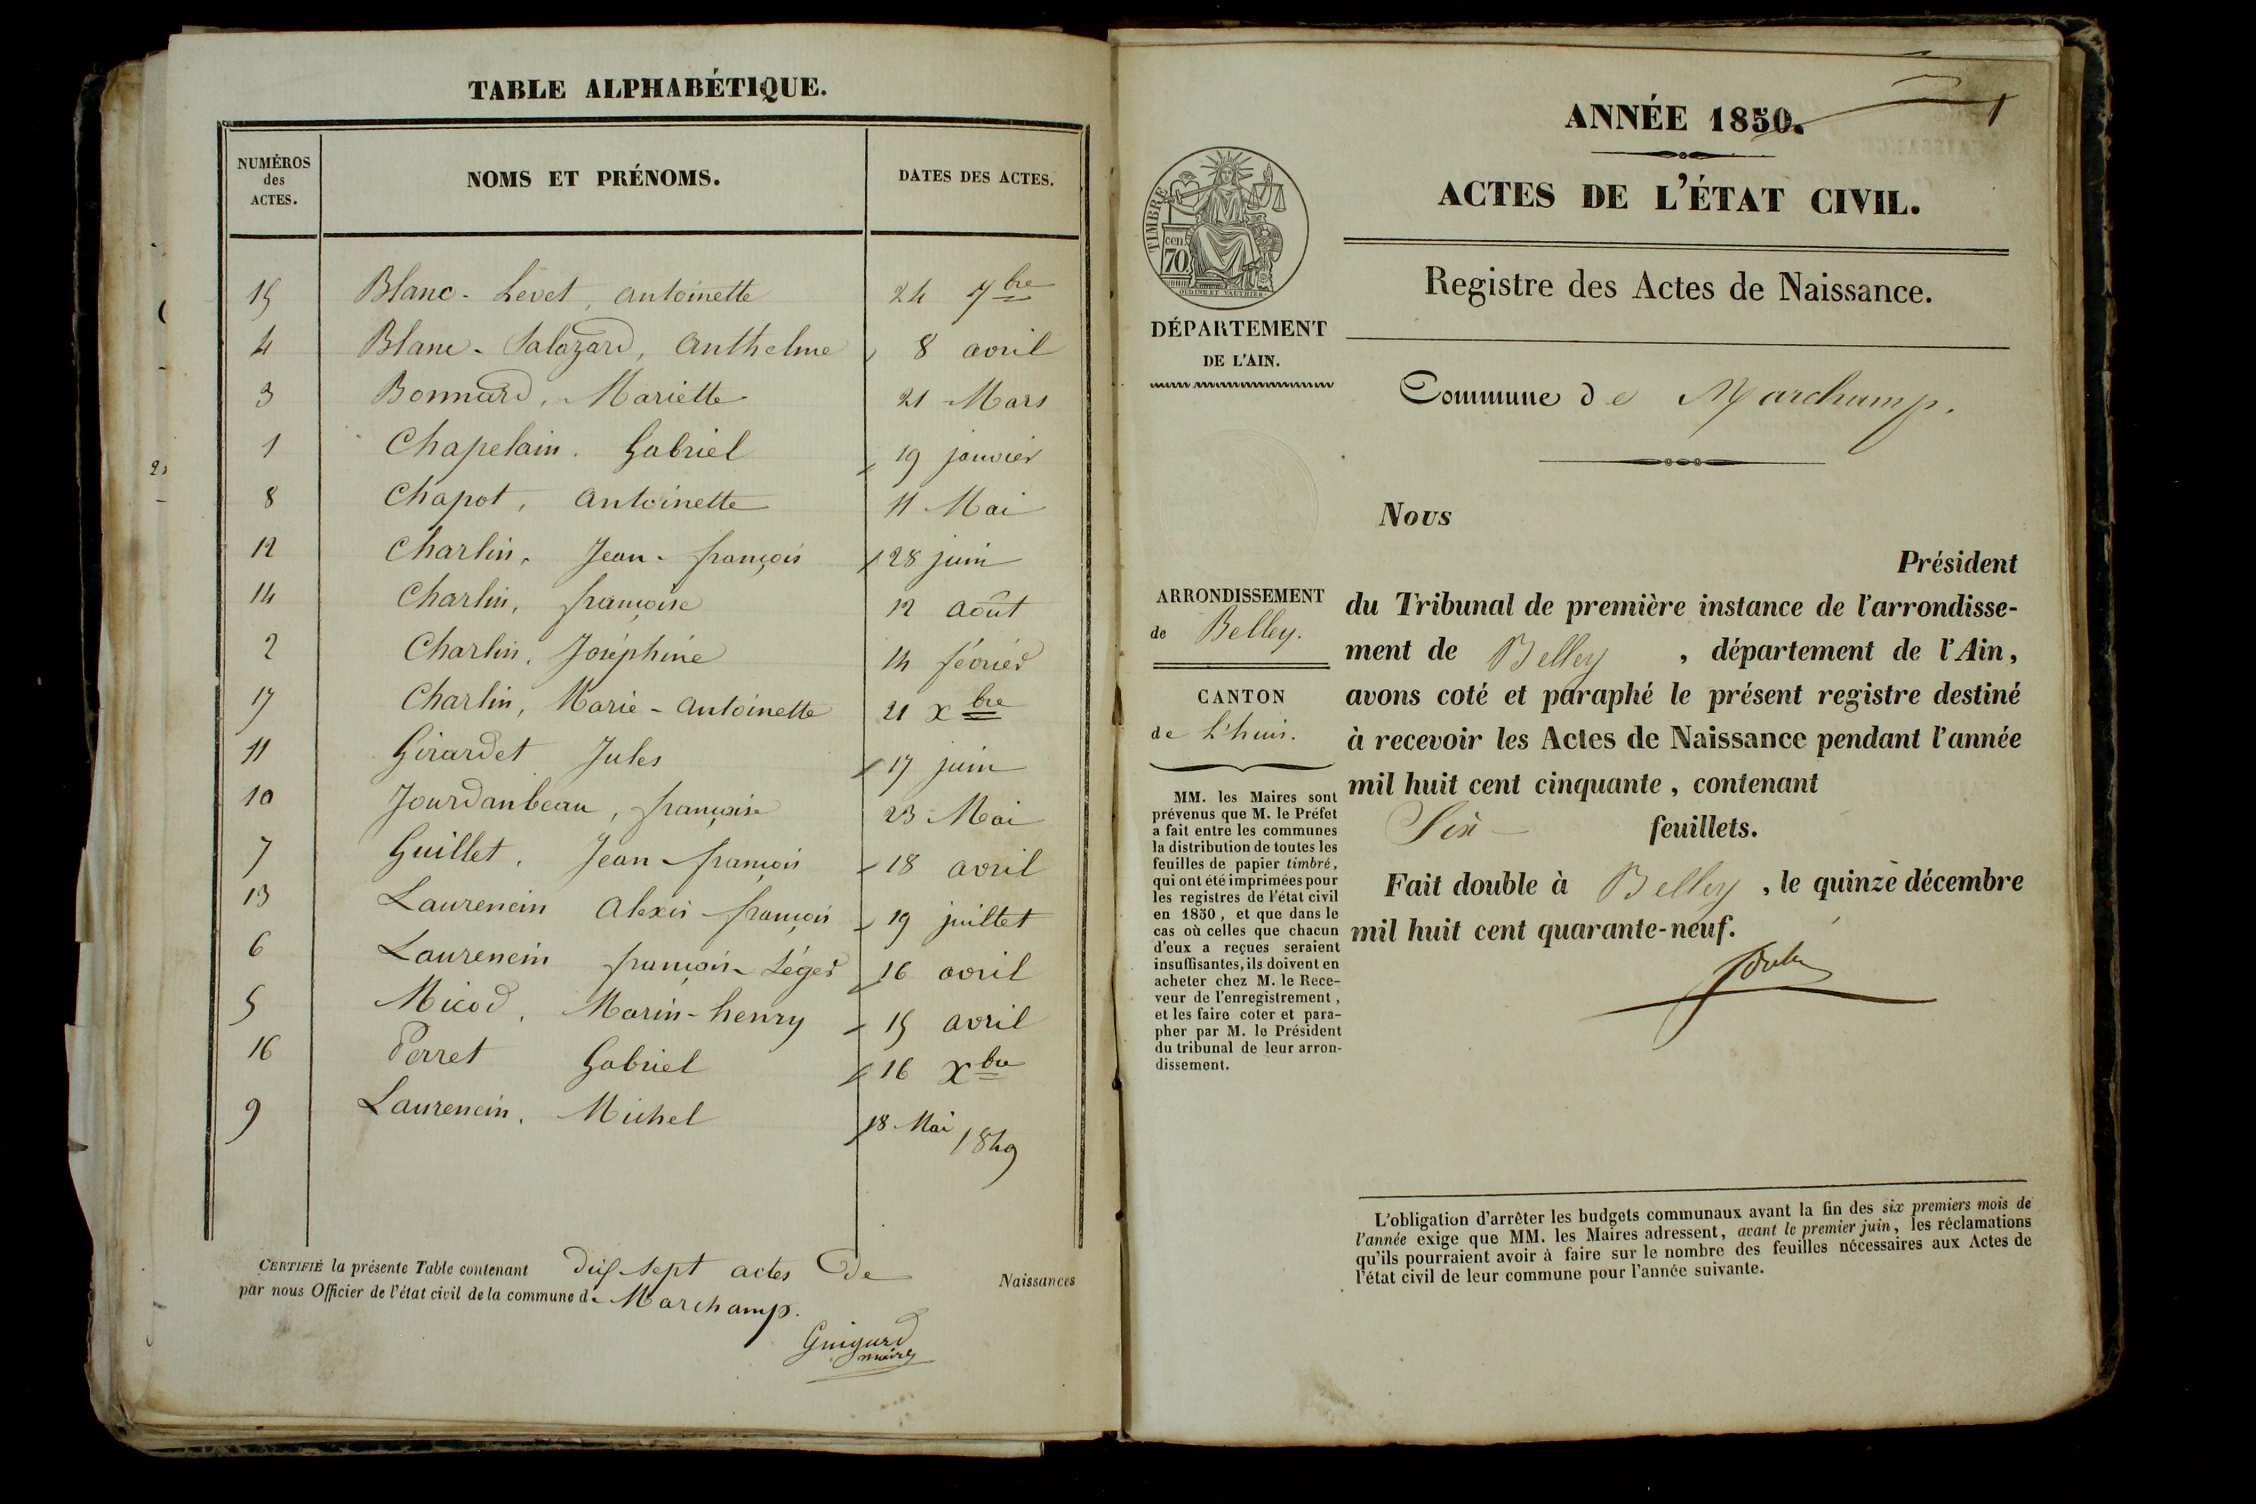 TABLE ALPHABÉTIQUE.
NUMÉROS des ACTES. NOMS ET PRÉNOMS. DATES DES ACTES.
15 Blanc-Levet, Antoinette 24 7bre
4 Blanc-Salazard, Anthelme 8 avril
3 Bonnard, Mariette 21 Mars
1 Chapelain. Gabriel 19 janvier
8 Chapot, Antoinette 11 Mai
12 Charlin, Jean-françois 28 juin
14 Charlin, françoise 12 Août
2 Charlin, Joséphine 14 février
17 Charlin, Marie-Antoinette 21 Xbre
11 Girardet Jules 17 juin
10 Jourdanbeau, françoise 23 Mai
7 Guillet, Jean-françois 18 avril
13 Laurencin Alexis-françois 19 juillet
6 Laurencin françois-Léger 16 avril
5 Micod, Marin-henry 15 avril
16 Perret Gabriel 16 Xbre
9 Laurencin, Michel 18 Mai 1849
CERTIFIÉ la présente Table contenant dix sept actes de Naissances
par nous Officier de l'état civil de la commune de Marchamp.
Guigard
maire
1
ANNÉE 1850.
ACTES DE L'ÉTAT CIVIL.
Registre des Actes de Naissance.
TIMBRE
cen.
70
OUDINÉ ET VAUTHIER
DÉPARTEMENT
DE L'AIN.
Commune de Marchamp.
ARRONDISSEMENT
de Belley.
CANTON
de L'huis.
MM. les Maires sont
prévenus que M. le Préfet
a fait entre les communes
la distribution de toutes les
feuilles de papier timbré,
qui ont été imprimées pour
les registres de l'état civil
en 1850, et que dans le
cas où celles que chacun
d'eux a reçues seraient
insuffisantes, ils doivent en
acheter chez M. le Rece-
veur de l'enregistrement,
et les faire coter et para-
pher par M. le Président
du tribunal de leur arron-
dissement.
Nous
Président
du Tribunal de première instance de l'arrondisse-
ment de Belley, département de l'Ain,
avons coté et paraphé le présent registre destiné
à recevoir les Actes de Naissance pendant l'année
mil huit cent cinquante, contenant
Six feuillets.
Fait double à Belley, le quinze décembre
mil huit cent quarante-neuf.
L'obligation d'arrêter les budgets communaux avant la fin des six premiers mois de
l'année exige que MM. les Maires adressent, avant le premier juin, les réclamations
qu'ils pourraient avoir à faire sur le nombre des feuilles nécessaires aux Actes de
l'état civil de leur commune pour l'année suivante.